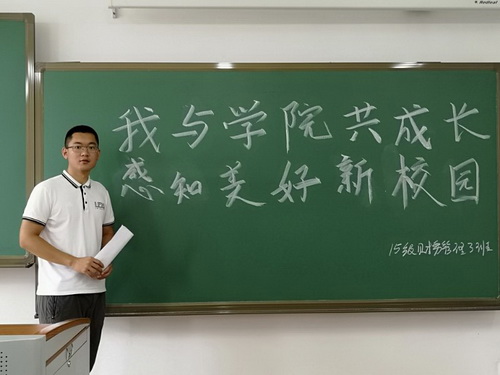 我与学院共成长
感知美好新校园
15级财务管理3班